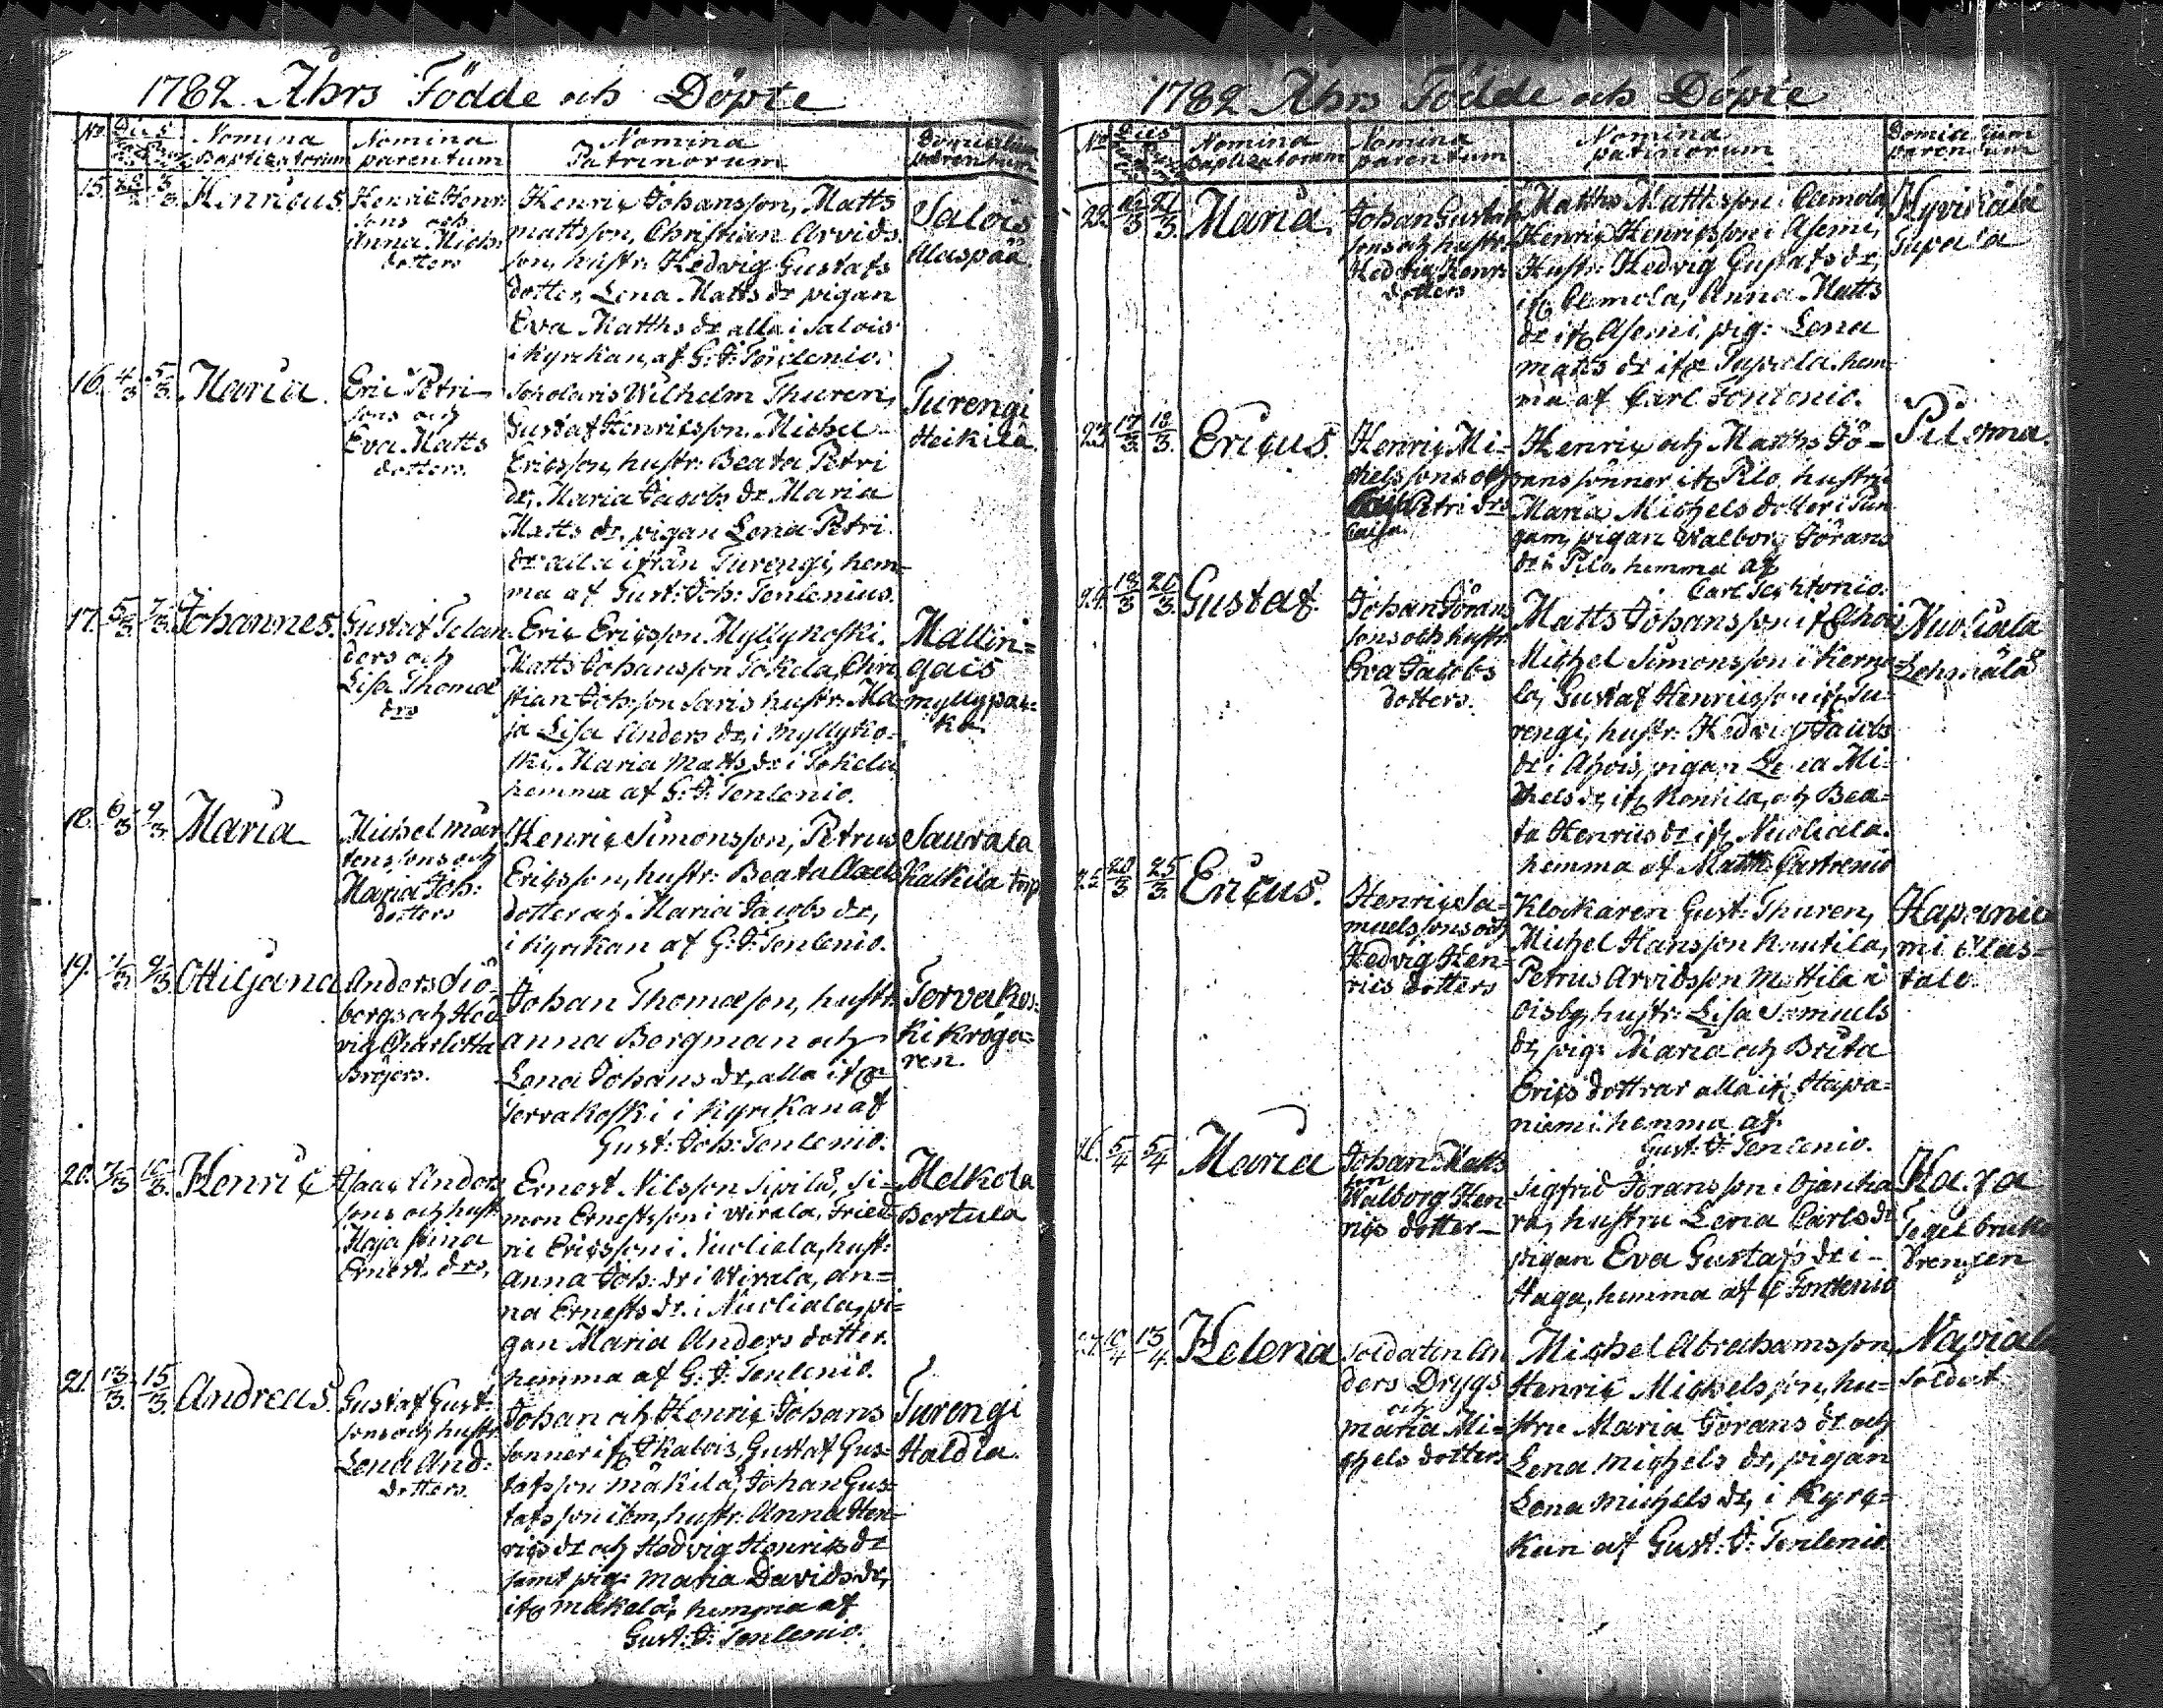 1782 Åhrs Födde och Döpte
No. Dies Nomina Baptizatorum Nomina parentum Nomina Patrinorum Domicilium parentum
15. Henricus
Henric Henr
sons och
Anna Mich:
dotters
Henric Johansson, Matts
mattsson, Christian Arvids
son, hustr: Hedvig Gustafs
dotter, Lena Matts dr pigan
Eva Matths dr alla i Salois
i Kyrckan, af G: J: Tenlenio.
Salois
Alaspää
16. 4/3 5/3 Maria.
Eric Petri
sons och
Eva Matts
dotters.
Scholaris Wilhelm Thuren,
Gustaf Henricsson, Michel
Ericsson, hustr: Beata Petri
dr, Maria Jacobs dr, Maria
Matts dr, pigan Lena Petri
dr alla ifrån Turengi, hem-
ma af Gust: Joh: Tenlenius.
Turengi
Heikilä
17. 5/3 7/3 Johannes.
Gustaf Telan
ders och
Lisa Thomæ
drs
Eric Ericsson Myllykoski.
Matts Johansson Tokela, Chri
stian Johsson Saris hustr: Ma-
ja Lisa Anders dr, i Myllyko-
ski. Maria Matts dr i Tokela
hemma af G: J: Tenlenio.
Mallin=
gais
myllypar=
ka.
18. 6/3 9/3 Maria
Michel Mår
tenssons och
Maria Joh:
dotters
Henric Simonsson, Petrus
Ericsson, hustr: Beata Axels
dotter och Maria Jacobs dr,
i Kyrckan af G: J: Tenlenio.
Saurala
Kalkila torp
19. 7/3 9/3 Ottiljana
Anders Siö-
bergs och Hed-
vig Charlotta
Bröjers.
Johan Thomæson, hustr:
Anna Bergman och
Lena Johans dr, alla ifr
Tervakoski i Kyrckan af
Gust: Joh: Tenlenio.
Tervakos:
ki kroga=
ren.
20. 7/3 10/3 Henric
Isaac Anders
sons och hust
Maja Stina
Ernest. drs,
Ernest Nilsson Sipilä, Si-
mon Ernestsson i Wirala, Fried
ric Ericsson i Nuoliala, hust:
Anna Joh: dr i Wirala, an=
na Ernests dr. i Nuoliala, pi=
gan Maria Anders dotter.
hemma af G: J: Tenlenio.
Melkola
Bertula
21. 13/3 15/3 Andreas.
Gustaf Gust-
sons och hustr
Lena And:
dotters.
Johan och Henric Johans
sönner ifr Skalois, Gustaf Gus=
tafsson mäkilä, Johan Gus=
tafsson item, hustr: Anna Hen-
rics dr och Hedvig Henrics dr
samt pig: Maria Davids dr,
ifr mäkelä, hemma af
Gust: J: Tenlenio.
Turengi
Haldia.
1782 Åhrs Födde och Döpte
No Dies Nomina Baptizatorum Nomina parentum Nomina patrinorum Domicilium parentum
22. Maria.
Johan Gustafs
sons och hustr:
Hedvig Henr:
dotters
Matths Matthsson i
Henric Henricsson i Asemi,
Hustr: Hedvig Gustafs dr,
Anna Matts
dr ifr Asemi, pig: Lena
matts dr ifr Tapala, hem-
ma af Carl
Tapala
23. 17/3 18/3 Ericus.
Henric Mi-
chelssons och
Petri drs
Caisa
Henric och Matths Jö-
ransönner ifr Pilo, hustru
Maria Michels dotter i Tun
gam, pigan Walborg Jörans
dr i Pilo, hemma af
Carl
Pilema.
24. 18/3 20/3 Gustaf.
Johan Jörans
sons och hustr
Eva Jacobs
dotters.
Matts Johansson ifr Ahois
Michel Simonsson i
la, Gustaf Henricsson ifr Tu-
rengi, hustr: Hedvig Jacobs
dr i Ahois, pigan Lena Mi-
chels dr, ifr Kontila, och Bea=
ta Henrics dr ifr Nuoliala.
hemma af Matth:
Nuoliala
Lehmälä
25. 20/3 25/3 Ericus.
Henric Sa-
muelssons och
Hedvig Hen=
rics dotters
Klockaren Gust: Thuren,
Michel Hansson Knutila,
Petrus Arvidsson Mattila i
Oisby, hustr: Lisa Samuels
dr, pig: Maria och Brita
Erics dottrar alla ifr Hapa=
niemi. hemma af
Gust: J: Tenlenio.
Hapanie
mi Alas=
talo
26. 5/4 5/4 Maria
Johan Matts
son
Walborg Hen-
rics dotter
Sigfrid Joransson i Ojanha
ra, hustru Lena Carls dr
pigan Eva Gustafs dr i
Haga, hemma af C
Haga
Tegelbruks
Drengen
27. 10/4 13/4 Helena
Soldaten An
ders Drygs
och
Maria Mi-
chels dotters
Michel Abrahamsson
Henric Michelsson, hu=
stru Maria Jörans dr och
Lena michels dr, pigan
Lena michels dr, i Kyrc=
kan af Gust: J: Tenlenio
Napiala
Soldat